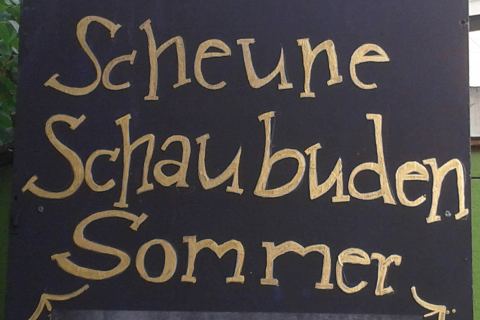 Scheune
Schaubuden
Sommer